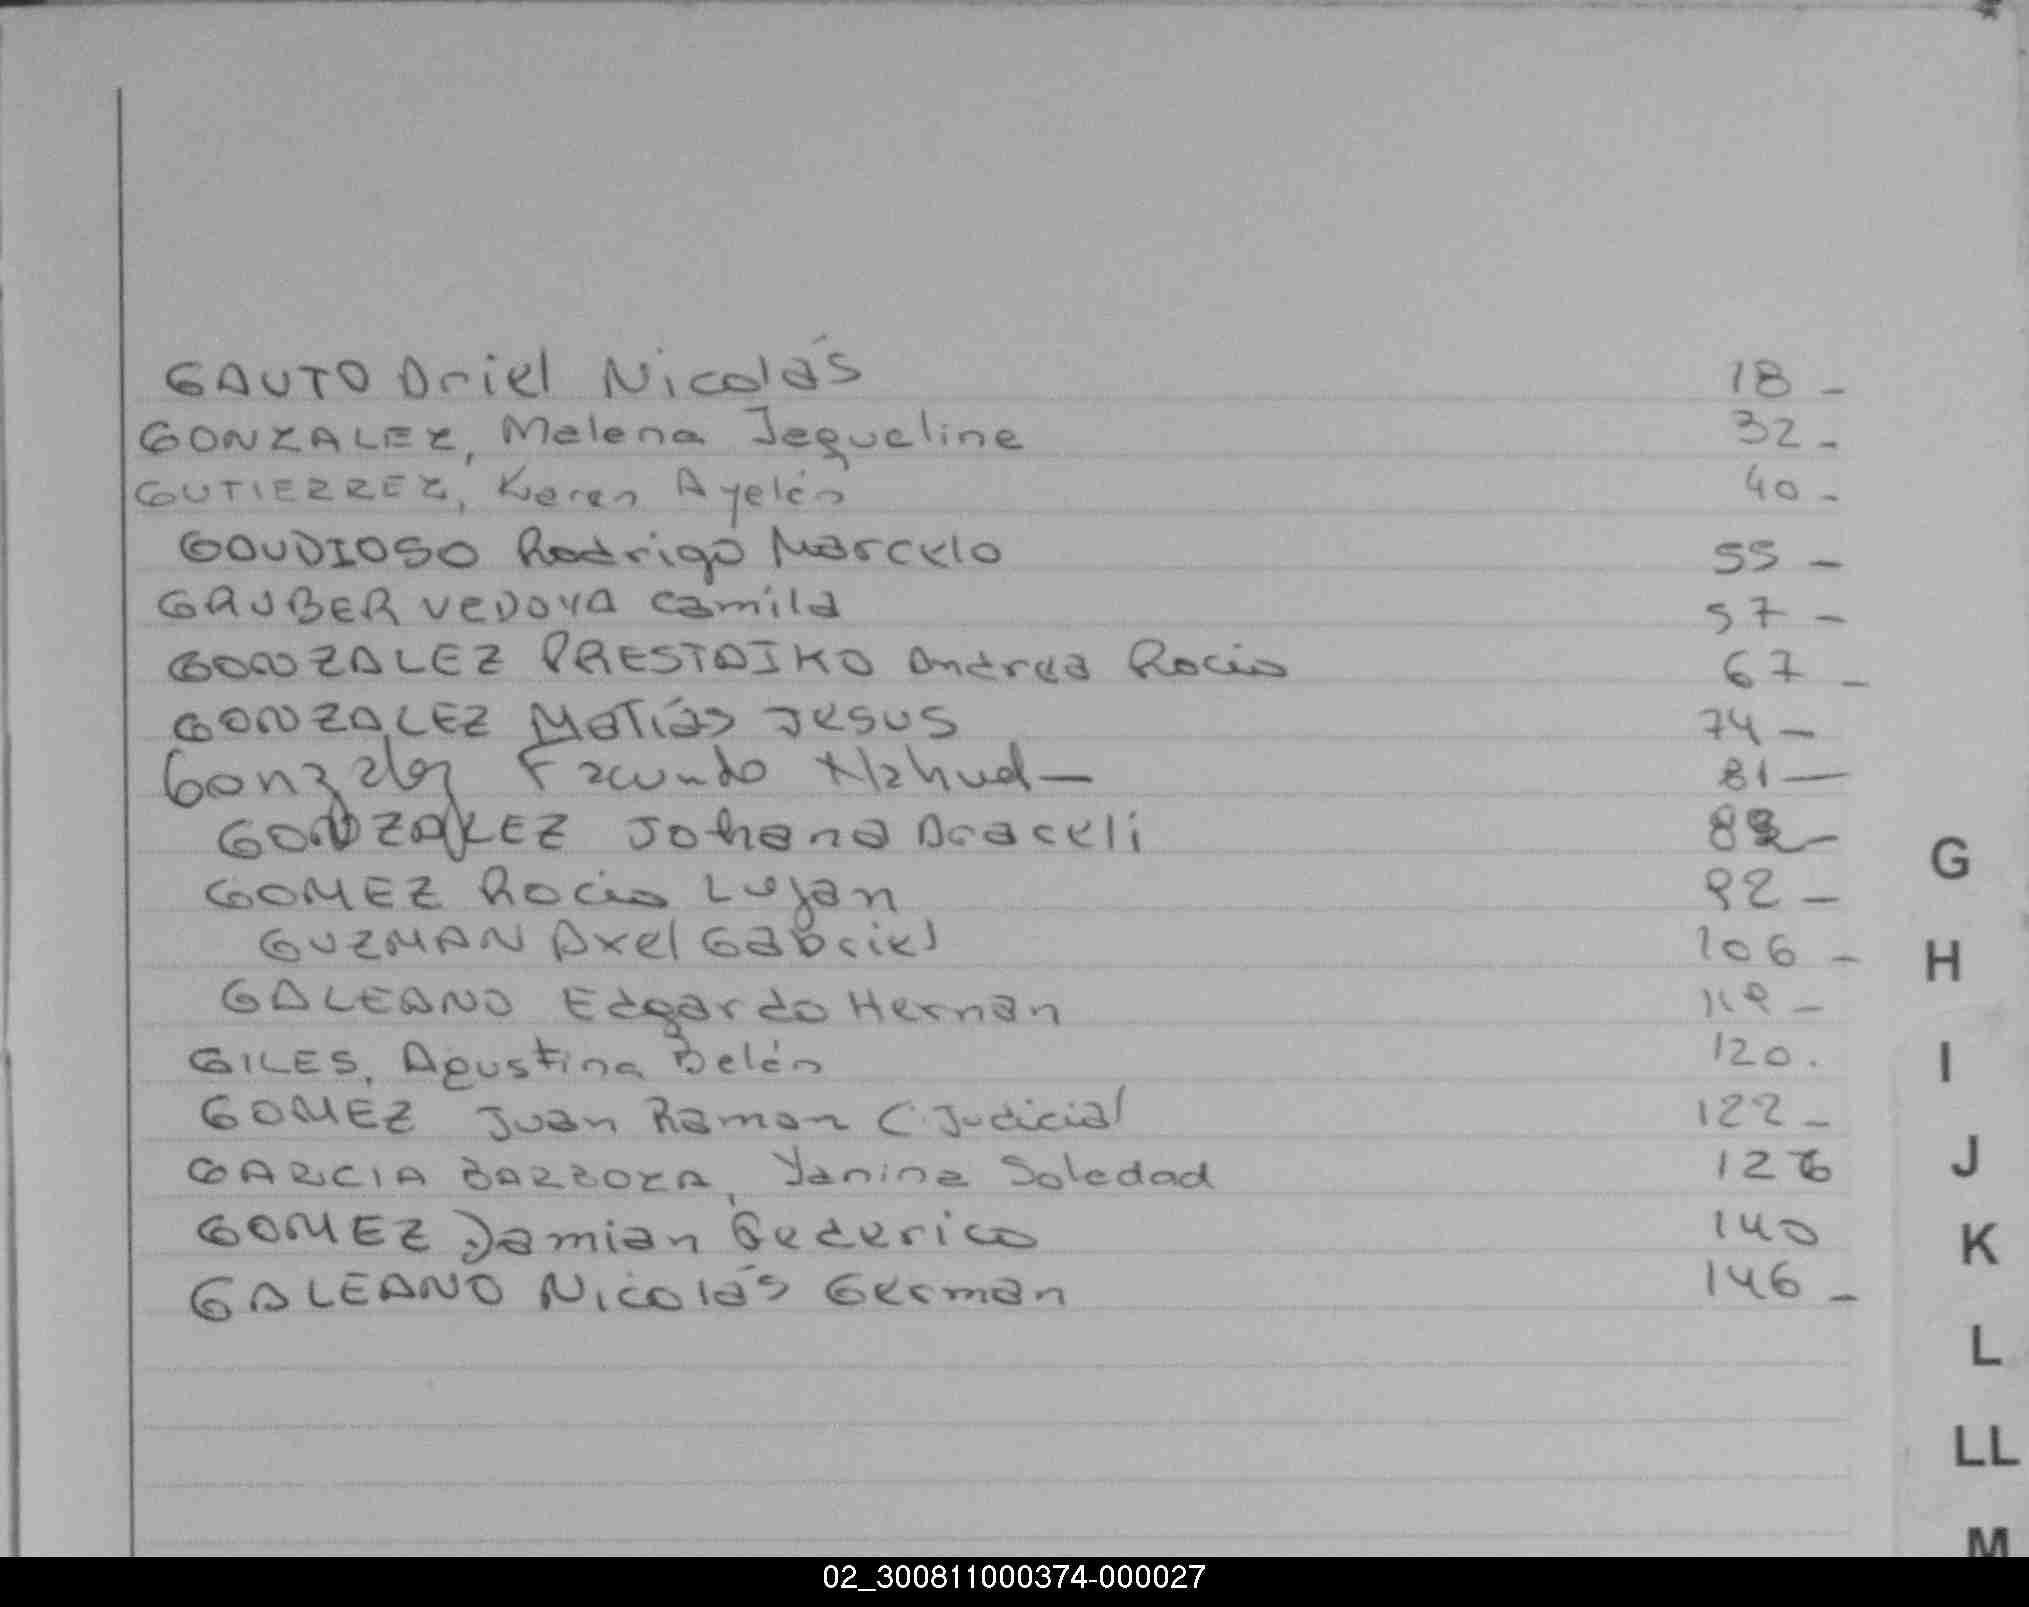 GAUTO Ariel Nicolás 18 -
GONZALEZ, Malena Jaqueline 32 -
GUTIERREZ, Karen Ayelén 40 -
GAUDIOSO Rodrigo Marcelo 55 -
GAUBER VEDOYA Camila 57 -
GONZALEZ PRESTAIKO Andrea Rocio 67 -
GONZALEZ Matiás Jesus 74 -
Gonzalez Facundo Nahuel — 81 —
GONZALEZ Johana Araceli -
GOMEZ Rocio Lujan 92 -
GUZMAN Axel Gabriel 106 -
GALEANO Edgardo Hernan 119 -
GILES, Agustina Belén 120.
GOMEZ Juan Ramon (Judicial 122 -
GARCIA BARBOZA, Yanina Soledad 126
GOMEZ Damian Federico 140
GALEANO Nicolás German 146 -
G
H
I
J
K
L
LL
M
02_300811000374-000027